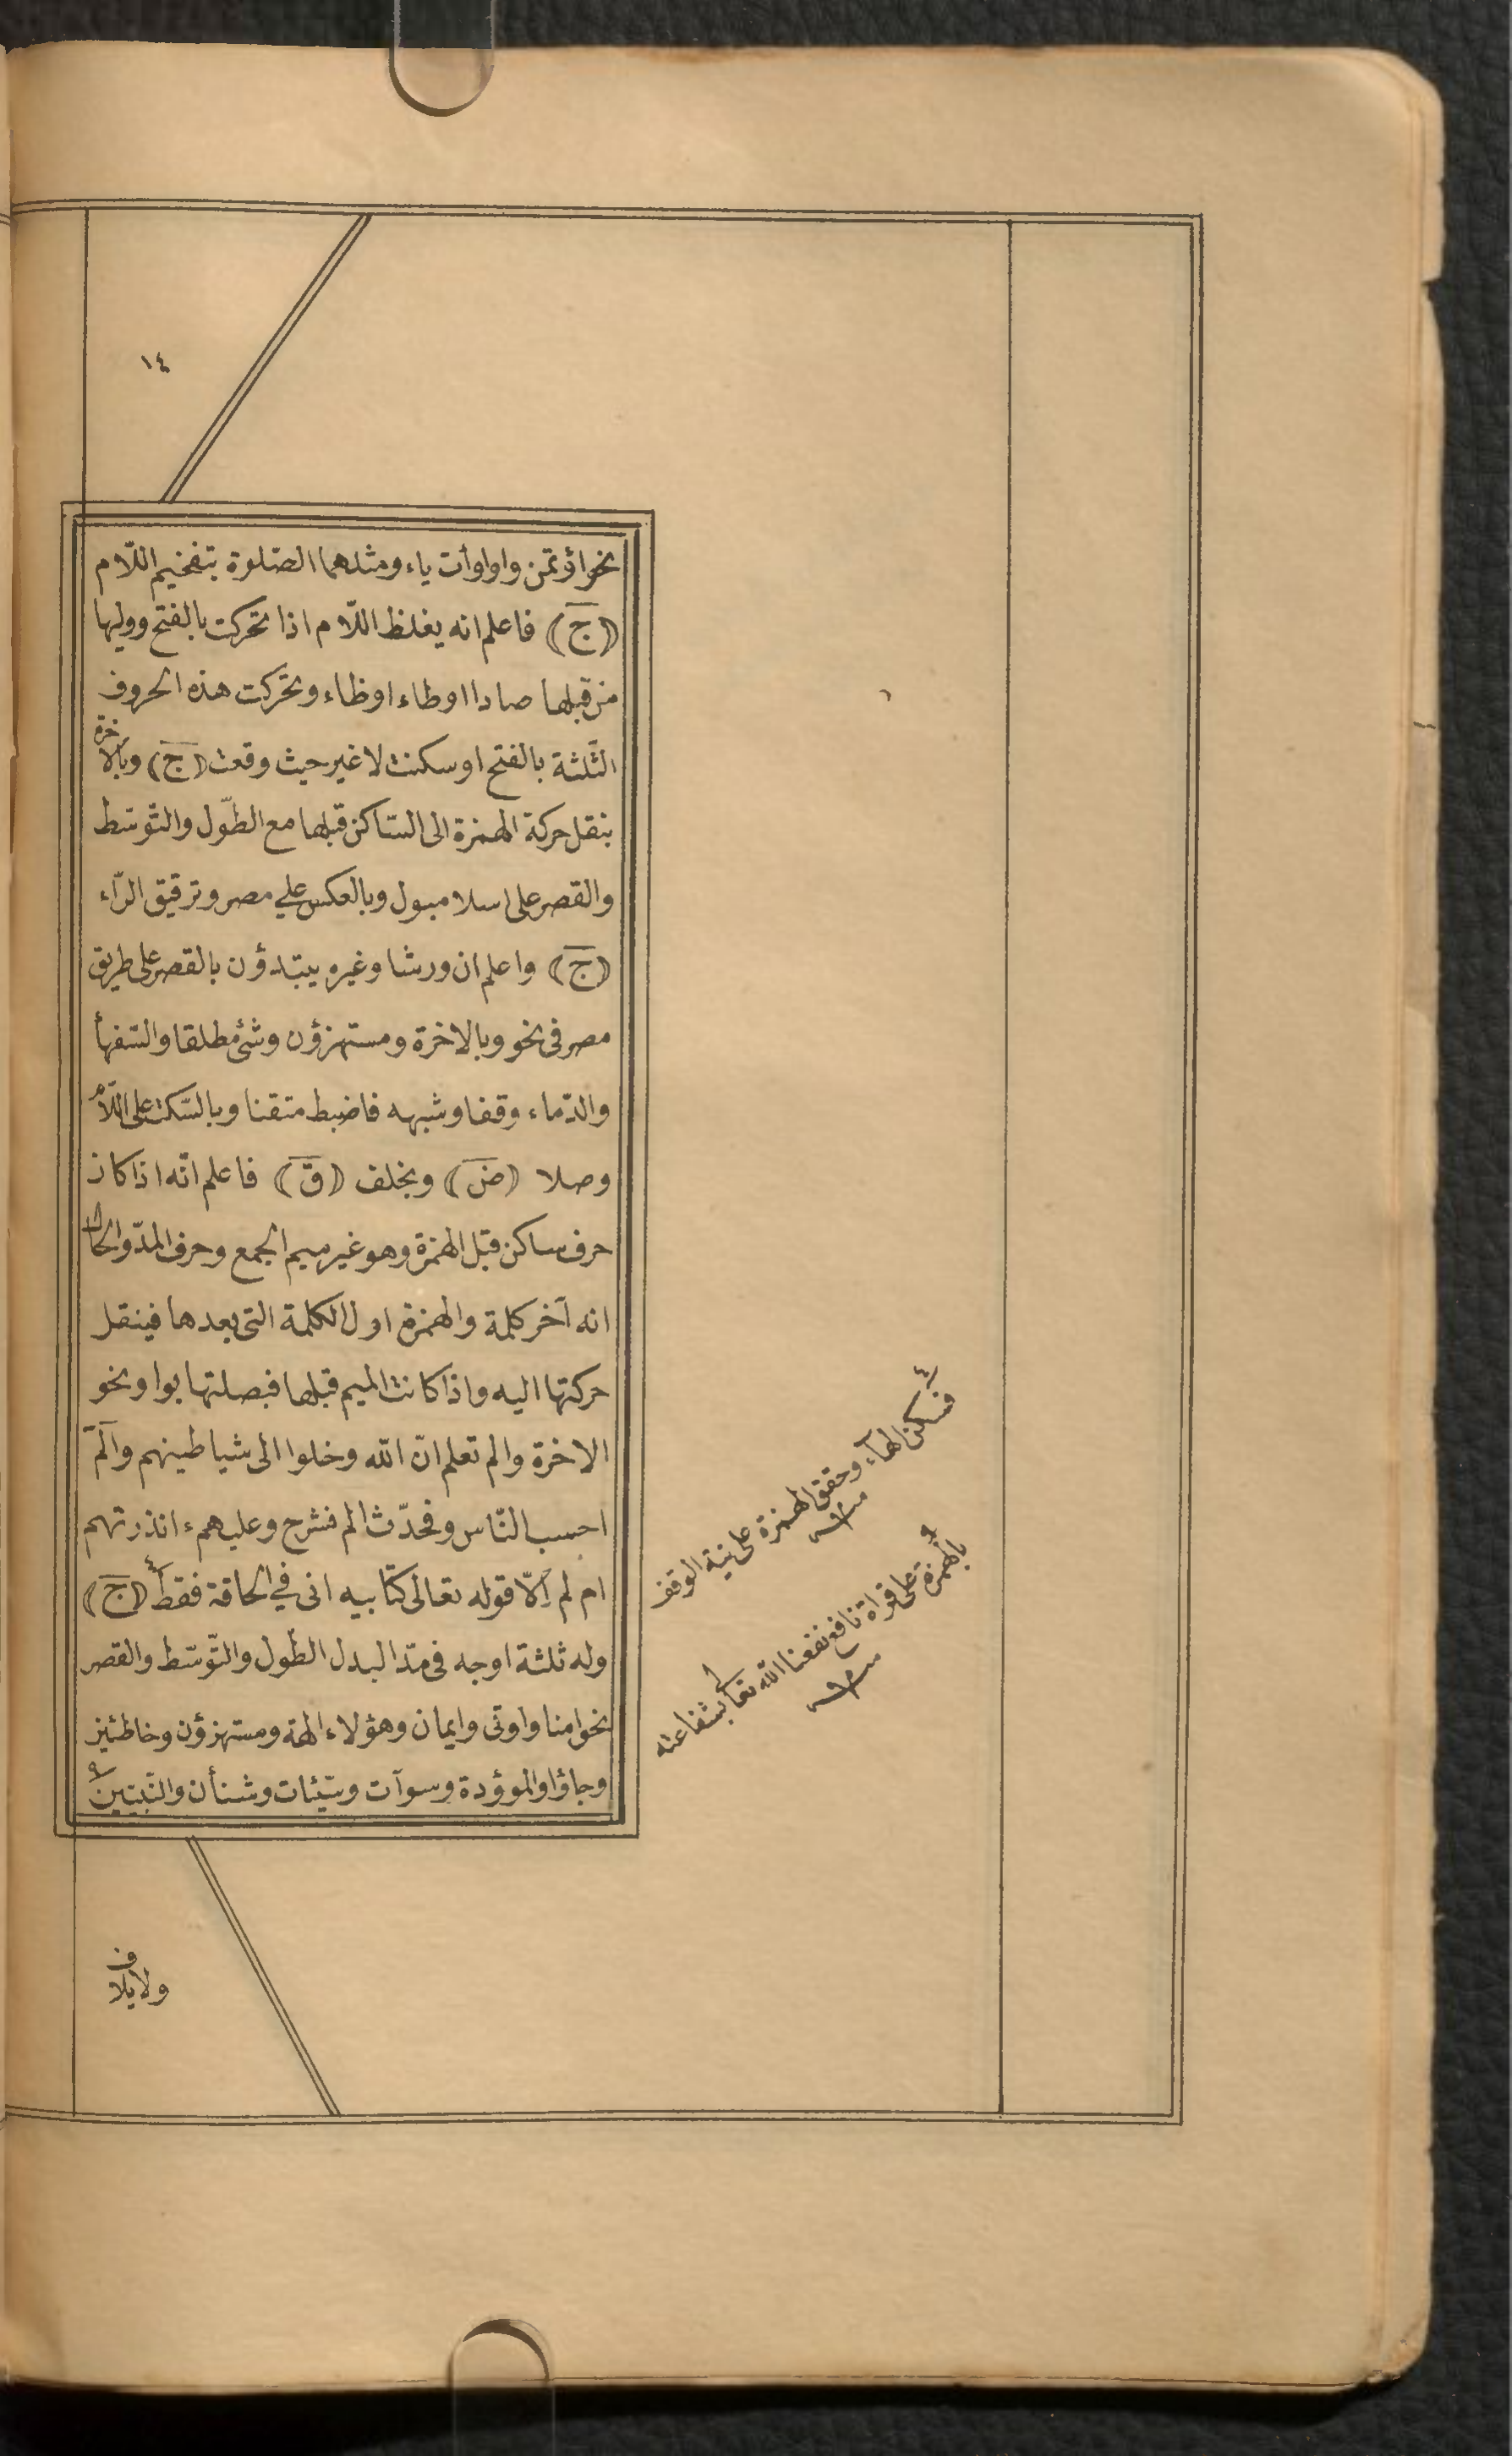 ١٤
نحو اؤتمن واواوأت ياء ومثلهما الصّلوة بتفخيم اللّام
(ج) فاعلم انه يغلظ اللّام اذا تحركت بالفتح ووليها
من قبلها صادا اوطاء اوظاء وتحركت هذه الحروف
الثّلثة بالفتح او سكنت لا غير حيث وقعت (ج) وبالاخرة
بنقل حركة الهمزة الى السّاكن قبلها مع الطّول والتّوسّط
والقصر على اسلامبول وبالعكس على مصر وترقيق الرّاء
(ج) واعلم ان ورشا وغيره يبتدؤن بالقصر على طريق
مصر فى نحو وبالاخرة ومستهزؤن وشئ مطلقا والسّفهأ
والدّماء وقفا وشبهه فاضبط متقنا وبالسّكت على اللّام
وصلا (ض) وبخلف (ق) فاعلم انّه اذا كان
حرف ساكن قبل الهمزة وهو غير ميم الجمع وحرف المدّ والحال
انه آخر كلمة والهمزة اول الكلمة التى بعدها فينقل
حركتها اليه واذا كانت الميم قبلها فبصلتها بواو نحو
الاخرة والم تعلم انّ الله وخلوا الى شياطينهم والٓمّ
احسب النّاس وفحدّث الم نشرح وعليهم ءانذرتهم
ام لم اِلّا قوله تعالى كتابيه انى في الحاقة فقط ٤ (ج)
وله ثلثة اوجه فى مدّ البدل الطّول والتّوسّط والقصر
نحو امنا واوتى وايمان وهؤلاء الهة ومستهزؤن وخاطئين
وجاؤا والموؤدة وسوآت وسيّئات وشنأن والنّبيّين ٩
٤
فسكن الهاء وحقق الهمزة على نية الوقف
منه
٩
بالهمزة على قراة نافع نفعنا الله تعالى بشفاعته
منه
ولايلاف